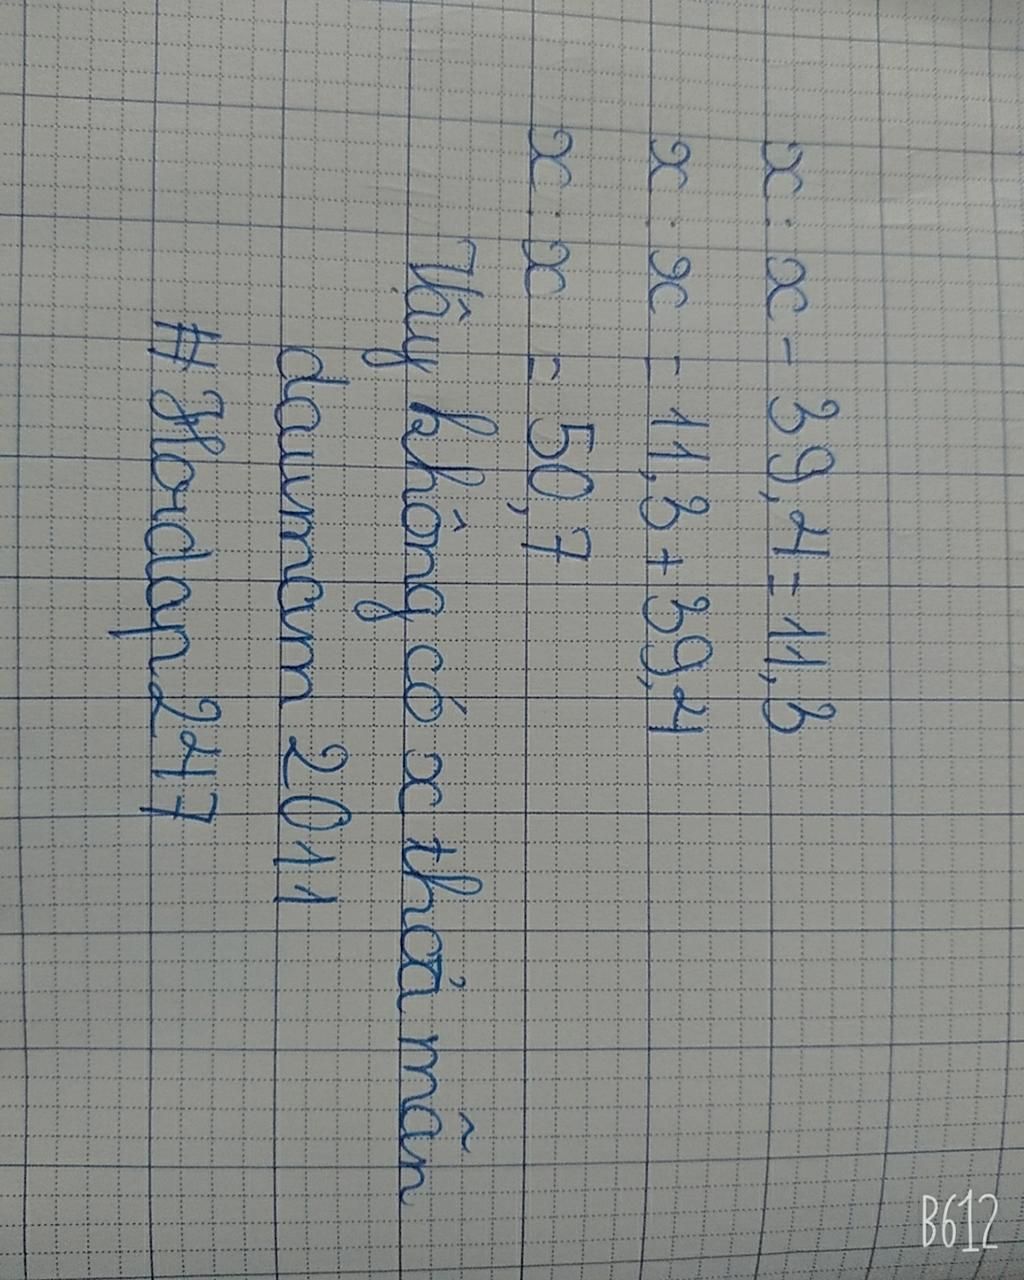 x : x - 39,4 = 11,3
x : x = 11,3 + 39,4
x : x = 50,7
Vậy không có x thoả mãn
dawnam 2011
# Hoidap247
B612